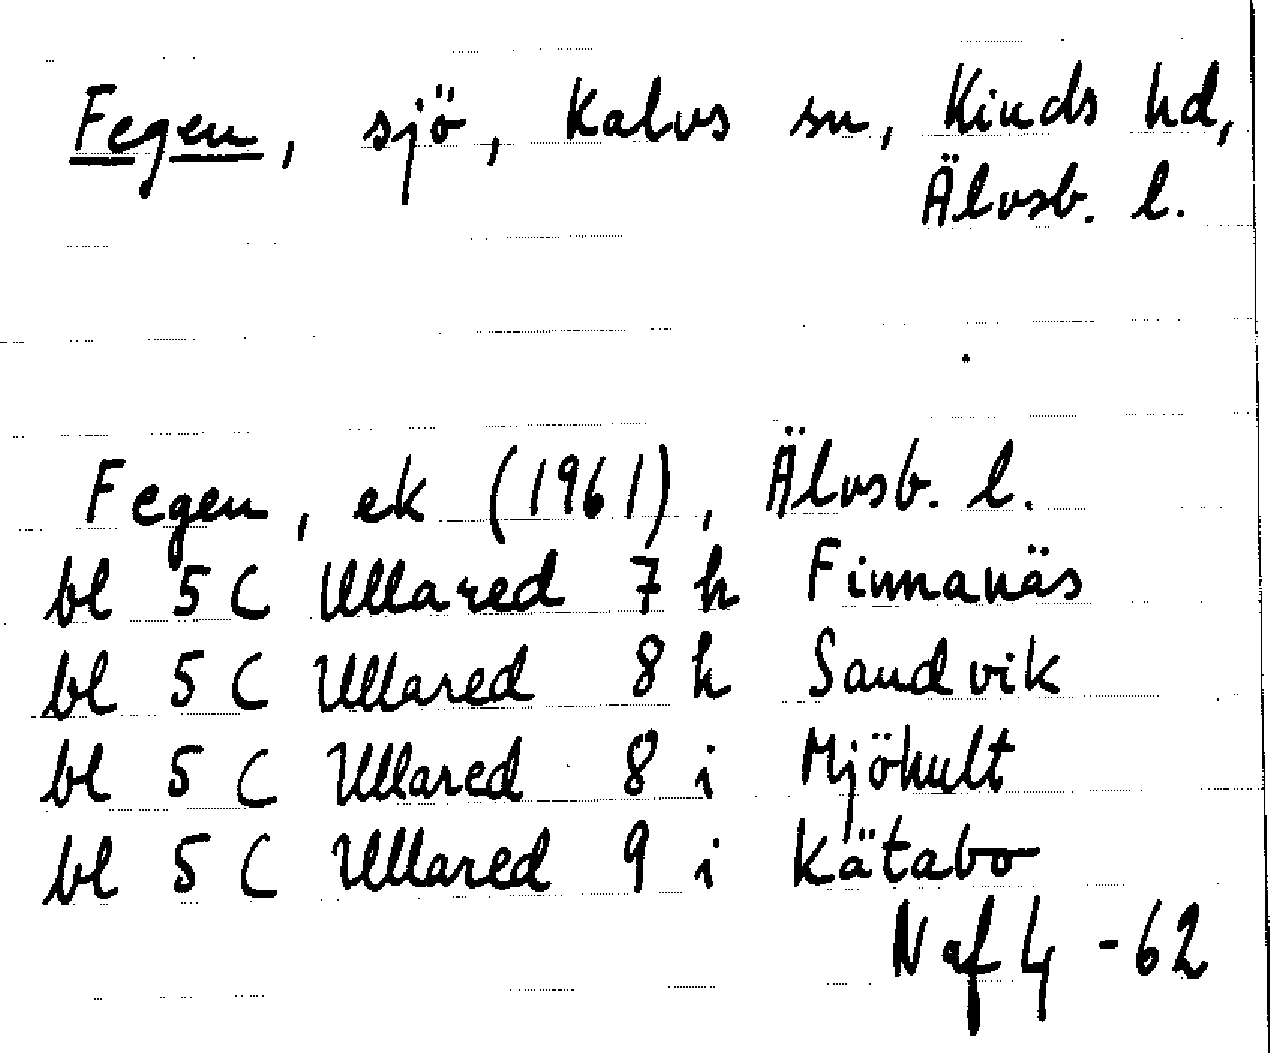 Fegen, sjö, Kalvs sn, Kinds hd,
Älvsb. l.
Fegen, ek (1961), Älvsb. l.
bl 5 C Ullared 7 h Finnanäs
bl 5 C Ullared 8 h Sandvik
bl 5 C Ullared 8 i Mjöhult
bl 5 C Ullared 9 i Kätabo
Naf 4 -62